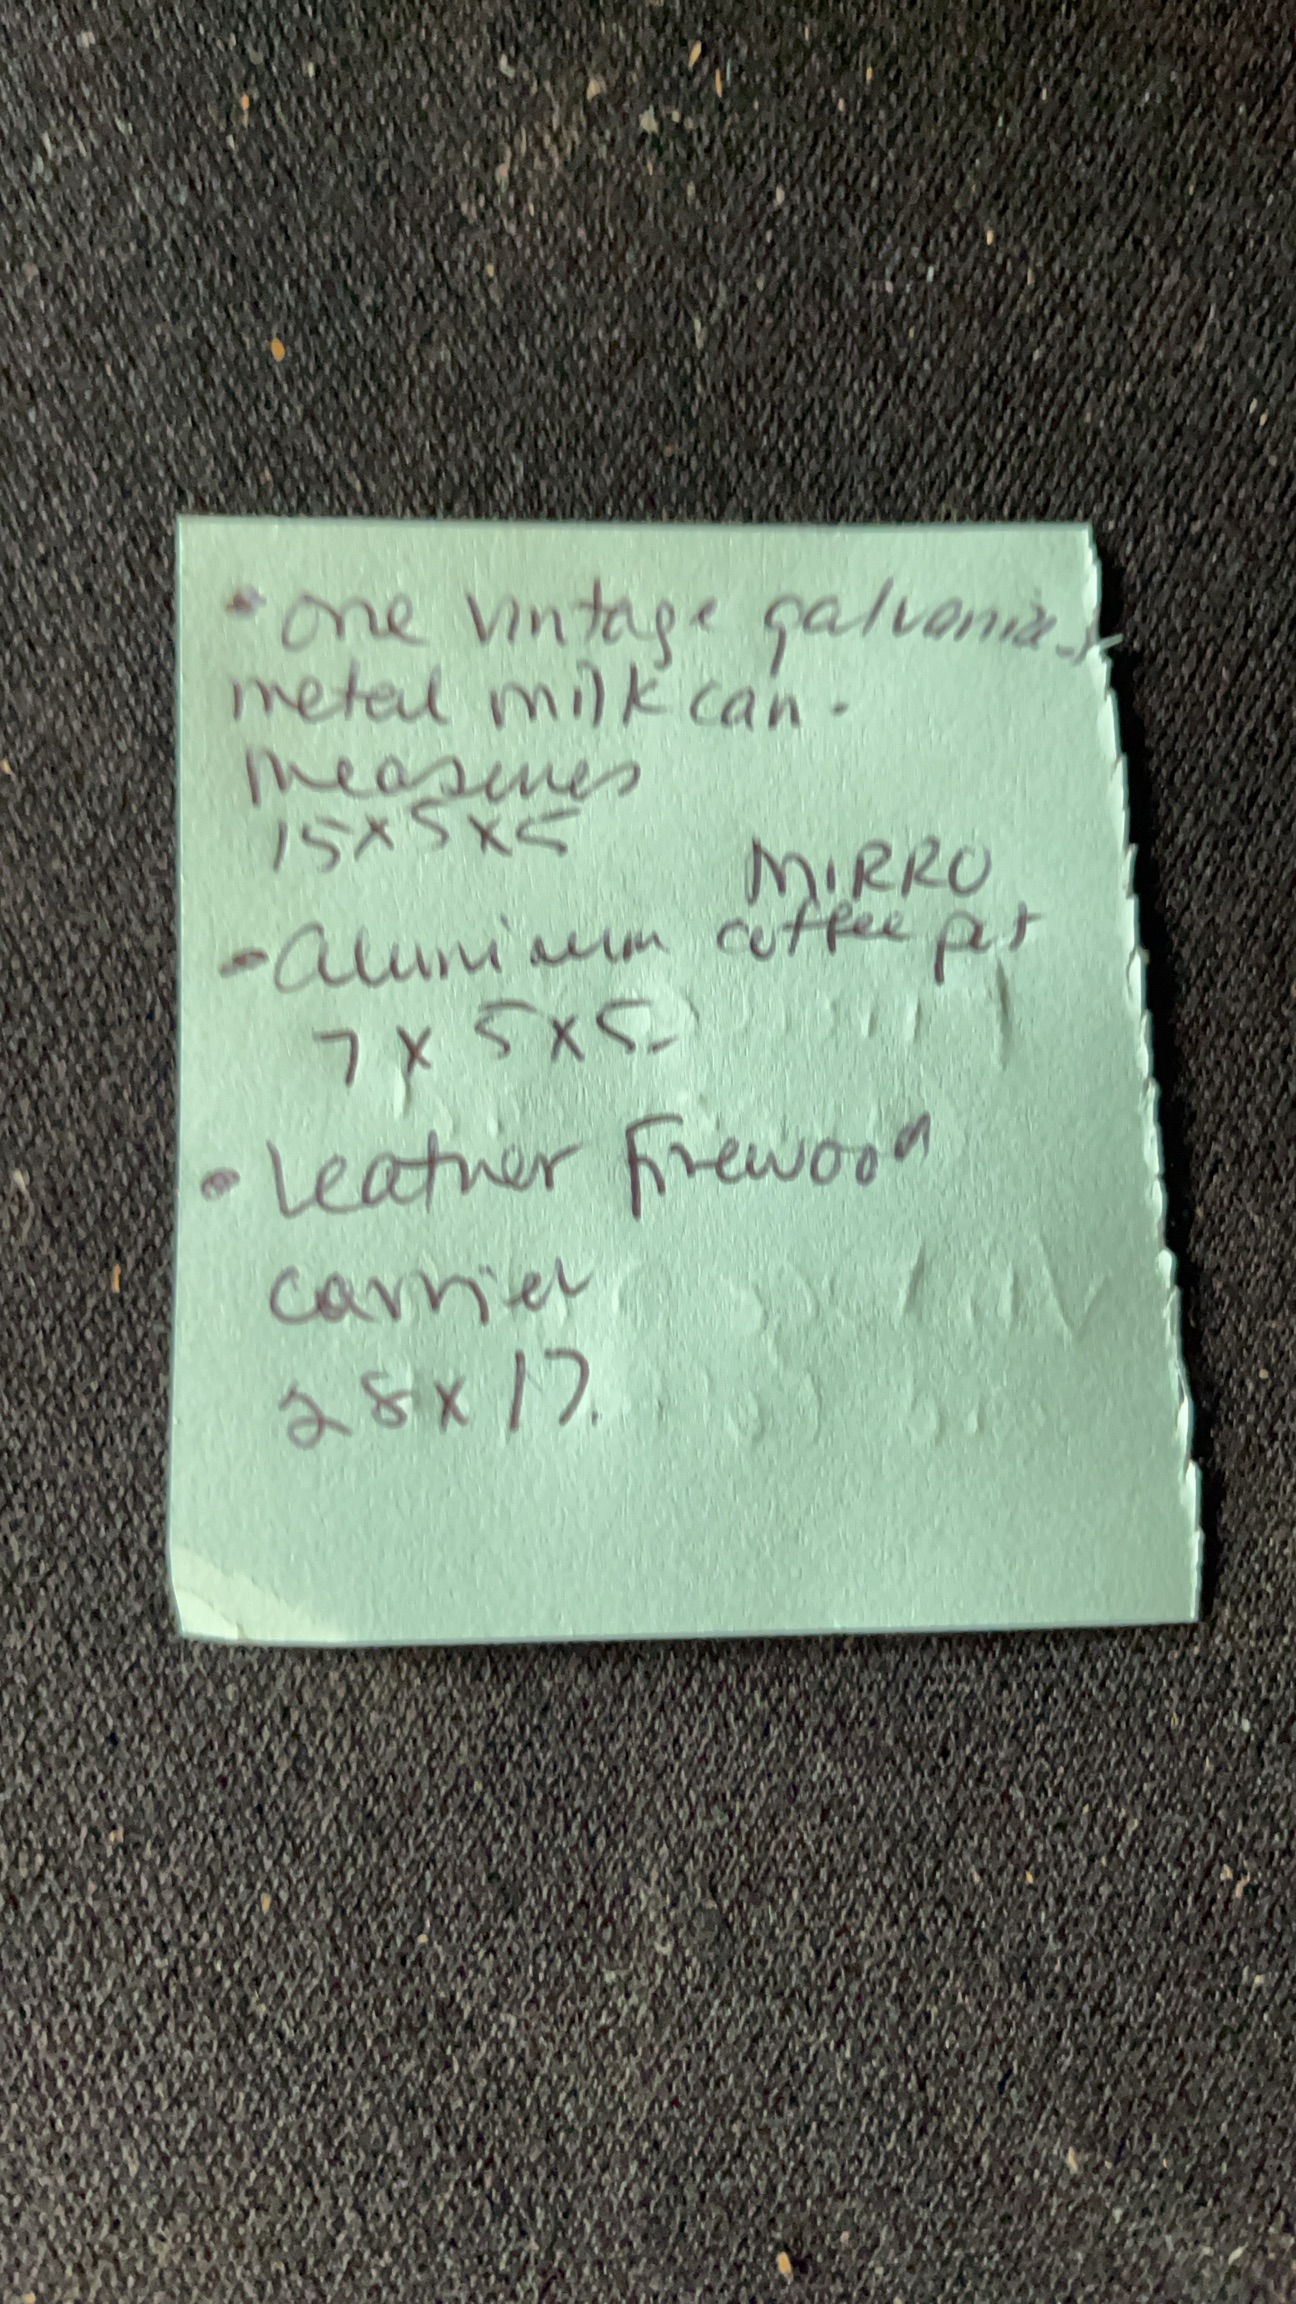 • one vintage galvanized
metal milk can.
measures
15x5x5
MIRRO
- aluminum coffee pot
7 x 5x5
• Leather Firewood
carrier
28x17.